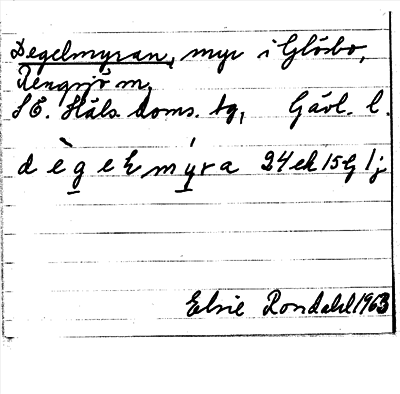 Degelmyran, myr i Glösbo,
Rengsjö sn,
SE. Häls. doms. tg, Gävl. l.
dègelmýra 24ek15g 1j
Elsie Rondahl 1963